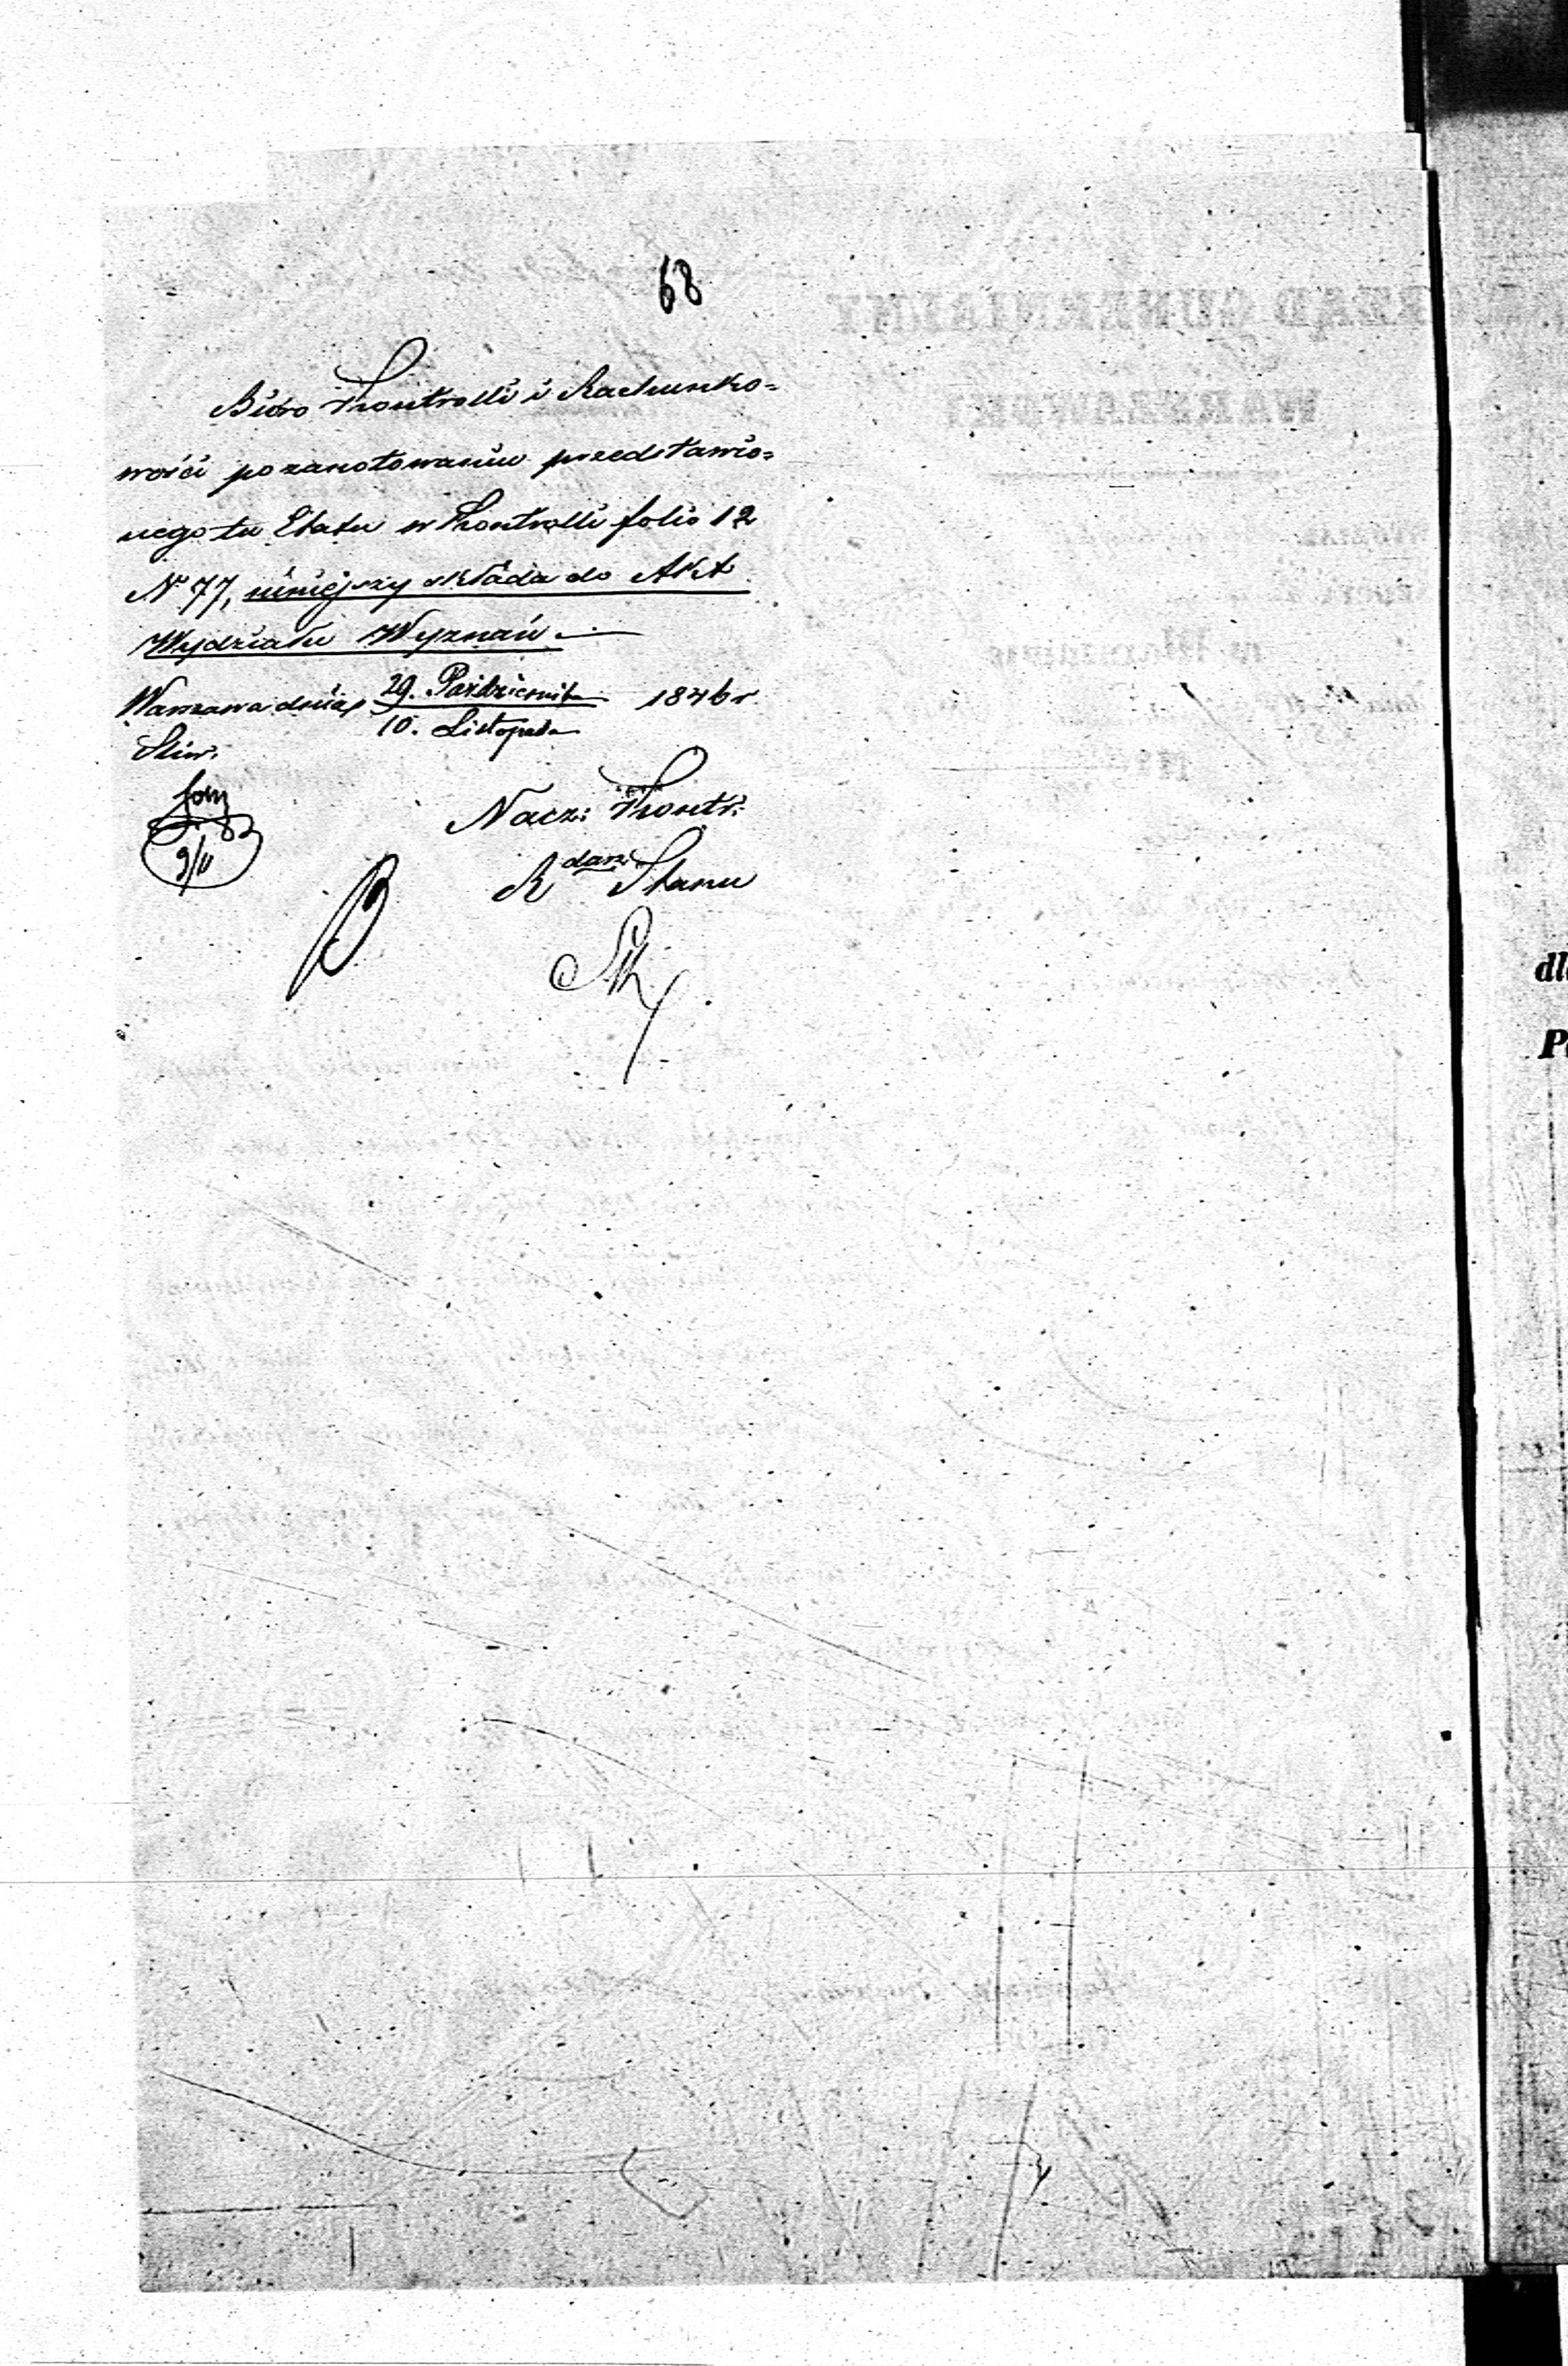 68
Biuro Kontrolli i Rachunko=
wości po zanotowaniu przedstawio=
nego tu Etatu w Kontrolli folio 12
N 77, niniejszy składa do Akt
Wydziału Wyznań.—
Warszawa dnia 29. Październik 1846 r.
10. Listopada
Nacz: Kontr:
R Stanu
9/11
dl
P